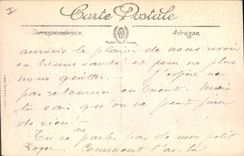 Carte Postale
Correspondance Adresse
aurions le plaisir de nous revoir
en bonne santé et pour ne plus
nous quitter. J'espère ne
pas retourner en Orient. Mais
tu sais qu'on ne peut jurer
de rien!
Tu ne parles pas de mon petit
Roger. Comment l'as tu